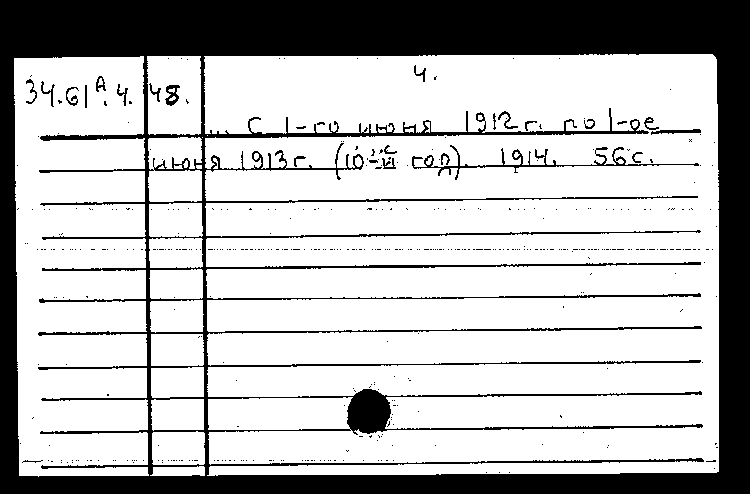 4.
34.61ᴬ.4.48.
... С 1-го июня 1912 г. по 1-ое
июня 1913 г. (10-й год). 1914. 56 с.